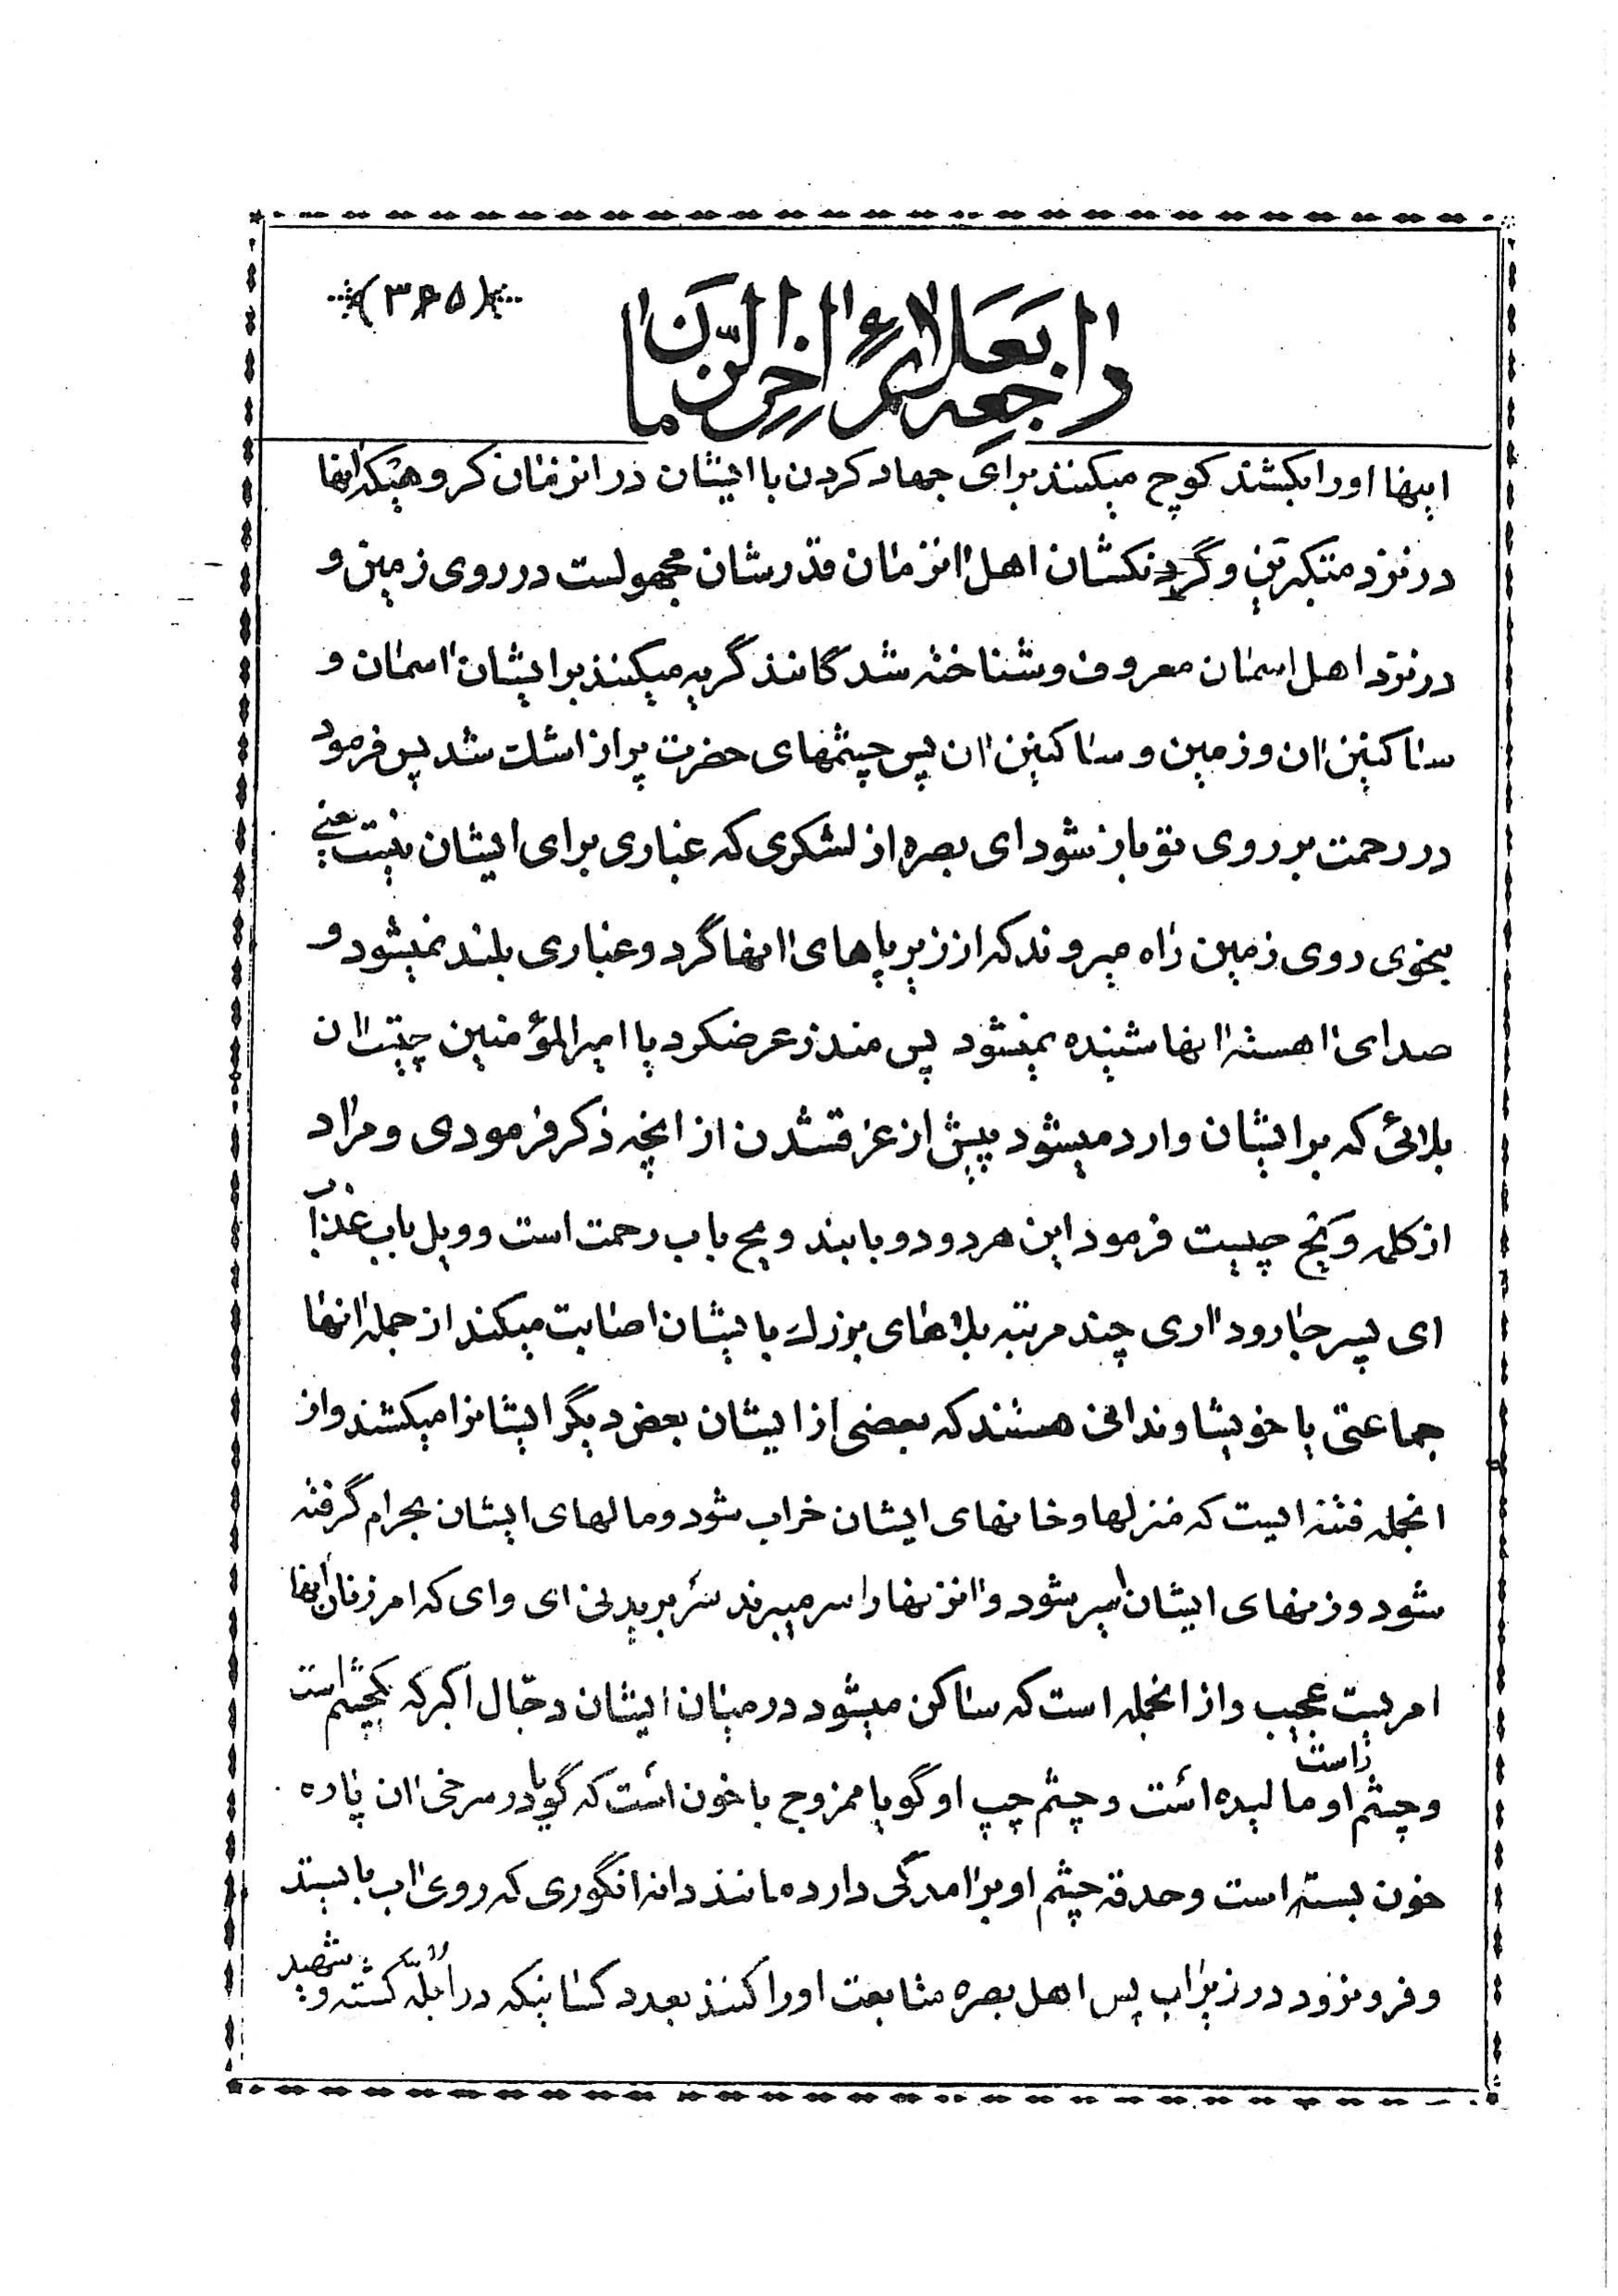 (۳۶۵)
راجعه بعلائم اخر الزمان
اینها او را بکشند کوچ میکنند برای جهاد کردن با ایشان در انزمان گروهیکه انها
در نزد متکبرین و گردنکشان اهل انزمان قدرشان مجهولست در روی زمین و
در نزد اهل اسمان معروف و شناخته شدگانند گریه میکنند بر ایشان اسمان و
ساکنین ان و زمین و ساکنین ان پس چشمهای حضرت پر از اشک شد پس فرمود
در رحمت بر روی تو باز شود ای بصره از لشکری که غباری برای ایشان نیست یعنی
بنحوی روی زمین راه میروند که از زیر پاهای انها گرد و غباری بلند نمیشود و
صدای اهسته انها شنیده نمیشود پس منذر عرضکرد یا امیرالمؤمنین چیست ان
بلائی که بر ایشان وارد میشود پیش از غرقشدن از انچه ذکر فرمودی و مراد
از کلمه ویح چیست فرمود این هر دو دو بابند ویح باب رحمت است و ویل باب عذاب
ای پسر جارود اری چند مرتبه بلاهای بزرک بایشان اصابت میکند از جمله انها
جماعتی یا خویشاوندانی هستند که بعضی از ایشان بعض دیگر ایشانرا میکشند و از
انجمله فتنه ایست که منزلها و خانهای ایشان خراب شود و مالهای ایشان بحرام گرفته
شود و زنهای ایشان اسیر شود و انزنها را سر میبرند سر بریدنی ای وای که امر زنان انها
امریست عجیب و از انجمله است که ساکن میشود در میان ایشان دجال اکبر که یکچشم است
و چشم راست او مالیده است و چشم چپ او گویا ممزوج با خون است که گویا در سرخی ان پاره
خون بسته است و حدقه چشم او برامدگی دارد مانند دانه انگوری که روی اب بایستد
و فرو نرود در زیر اب پس اهل بصره متابعت او را کنند بعدد کسانیکه در ابلّه کشته و شهید